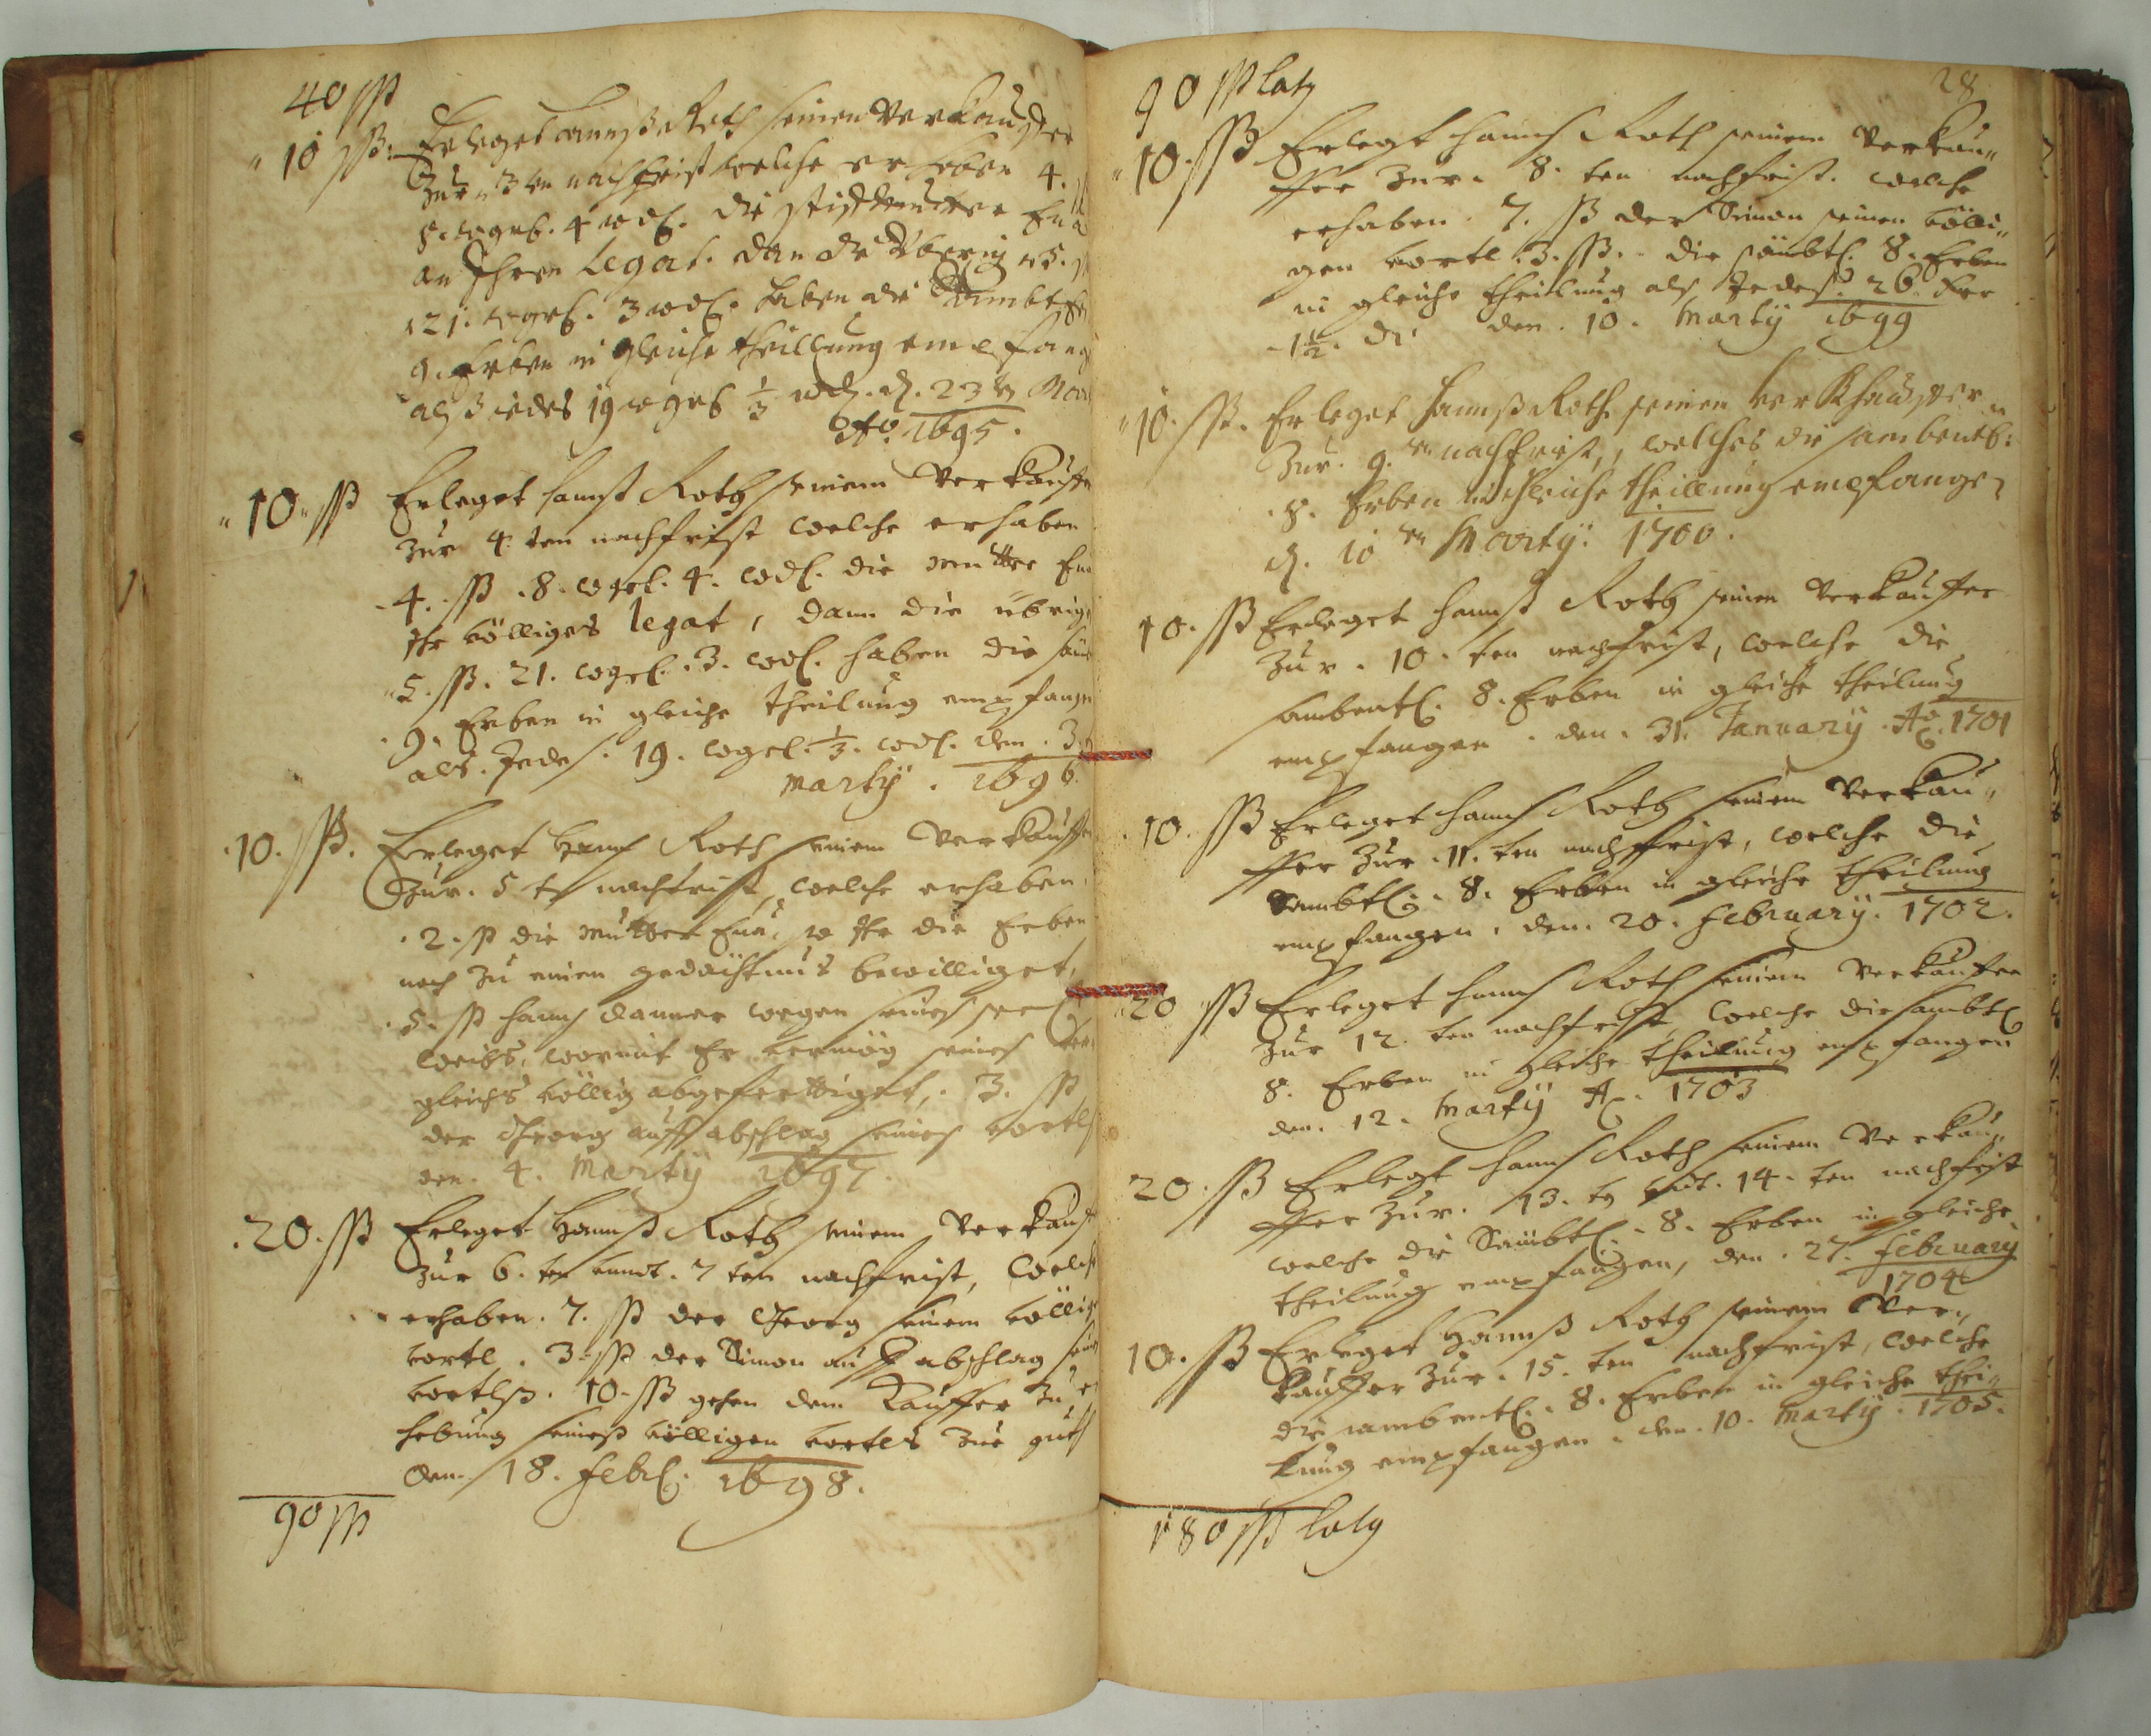 40 ſß
10 ſß. Erleget Hannß Roth seinem Verkauffer
Zur 3ten nachfrist welche erhoben 4. ſß
8. wgrl. 4 wdl. die Stiffmutter Eua
an Ihren Legat. dan die Vberig 5. ſß
21. wgrl. 3 wdl. haben die Sambtl.
9. Erben in gleiche theillung empfang
alß iedes 19 wgrl 1/3 wdl. d. 23ten
Ao. 1695.
10 ſß Erleget Hannß Roth seinem Verkauffer
Zur 4. ten nachfrist welche erhaben
4. ſß. 8. wgrl. 4. wdl. die mutter Eua
Ihr völliges legat, dann die übrige
5. ſß. 21. wgrl. 3. wdl. haben die
9. Erben in gleiche theilung empfangen
als. Jedes. 19. wgrl. 1/3. wdl. den. 3.
Martÿ. 1696.
10. ſß. Erleget Hannß Roth seinem Verkauffer
Zur. 5 ten nachfrist, welche erhaben.
2. ſß die Mutter Eua, so Ihr die Erben
noch zu einem gedächtnus bewilliget,
5. ſß Hannß Danner wegen seines
weibs, wormit Er vermög seines
gleichs völlig abgeferttiget, 3. ſß
der Georg auff abschlag seines vortls
den. 4. Martÿ 1697.
20. ſß Erleget Hannß Roth seinem Verkauff
Zur 6. ten unndt. 7 ten nachfrist, welche
erhaben. 7. ſß der Georg seinem völlig
vortl. 3. ſß der Simon auff abschlag sein
vortlß. 10. ſß gehen dem Kauffer Zu
hebung seineß völligen vortls zue guth
den. 18. Febr. 1698.
90 ſß
28
90 ſß latg
10. ſß Erlegt Hannß Roth seinem Verkau„
ffer Zur. 8. ten nachfrist. welche
erhaben. 7. ſß der Simon seinen völli„
gen vortl. 3. ſß. die sämbtl. 8. Erben
in gleiche theillung als Jedes. 26. Kr
1 1/2. di den. 10. Martÿ 1699
10. ſß. Erleget Hannß Roth seinem Verkhauffer
Zur. 9. ten nachfrist, welches die sambentl:
8. Erben in gleiche theillung empfangen
d. 10 ten Martÿ. 1700.
10. ſß Erleget Hannß Roth seinem Verkauffer
Zur. 10. ten nachfrist, welche die
sambentl. 8. Erben in gleiche theilung
empfangen. den. 31. Januarÿ. Ao. 1701
10. ſß Erleget Hannß Roth seinem Verkau„
ffer Zur. 11. ten nachfrist, welche die
Sambtl. 8. Erben in gleiche theilung
empfangen. den. 20. Februarÿ. 1702.
20 ſß Erleget Hannß Roth seinem Verkauffer
Zur 12. ten nachfrist, welche die sambtl
8. Erben in gleiche theilung empfangen
den. 12. Martÿ A. 1703
20. ſß Erlegt Hannß Roth seinem Verkau„
ffer Zur. 13. ten undt. 14. ten nachfrist
welche die Sämbtl. 8. Erben in gleiche
theilung empfangen, den. 27. Februarÿ
1704
10. ſß Erleget Hannß Roth seinem Ver„
kauffer Zur. 15. ten nachfrist, welche
die sambentl. 8. Erben in gleiche thei„
lung empfangen. den. 10. Martÿ. 1705.
180 ſß latg